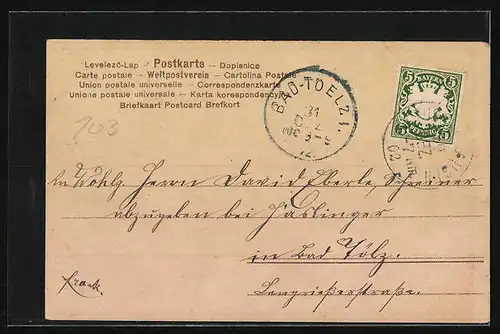 Levelező-Lap - Postkarte - Dopisnice
Carte postale - Weltpostverein - Cartolina Postale
Union postale universelle - Correspondenzkarte
Unione postale universale - Karta korespondency
Briefkaart Postcard Brefkort
103
BAD-TOELZ I.
31
12
8-9
BAYERN
5 5
PFENNIG
5 5
02
An Wohlg. Herrn David Eberle, Schreiner
abzugeben bei Haslinger
in Bad Tölz.
Frank.
Lengrießerstraße.